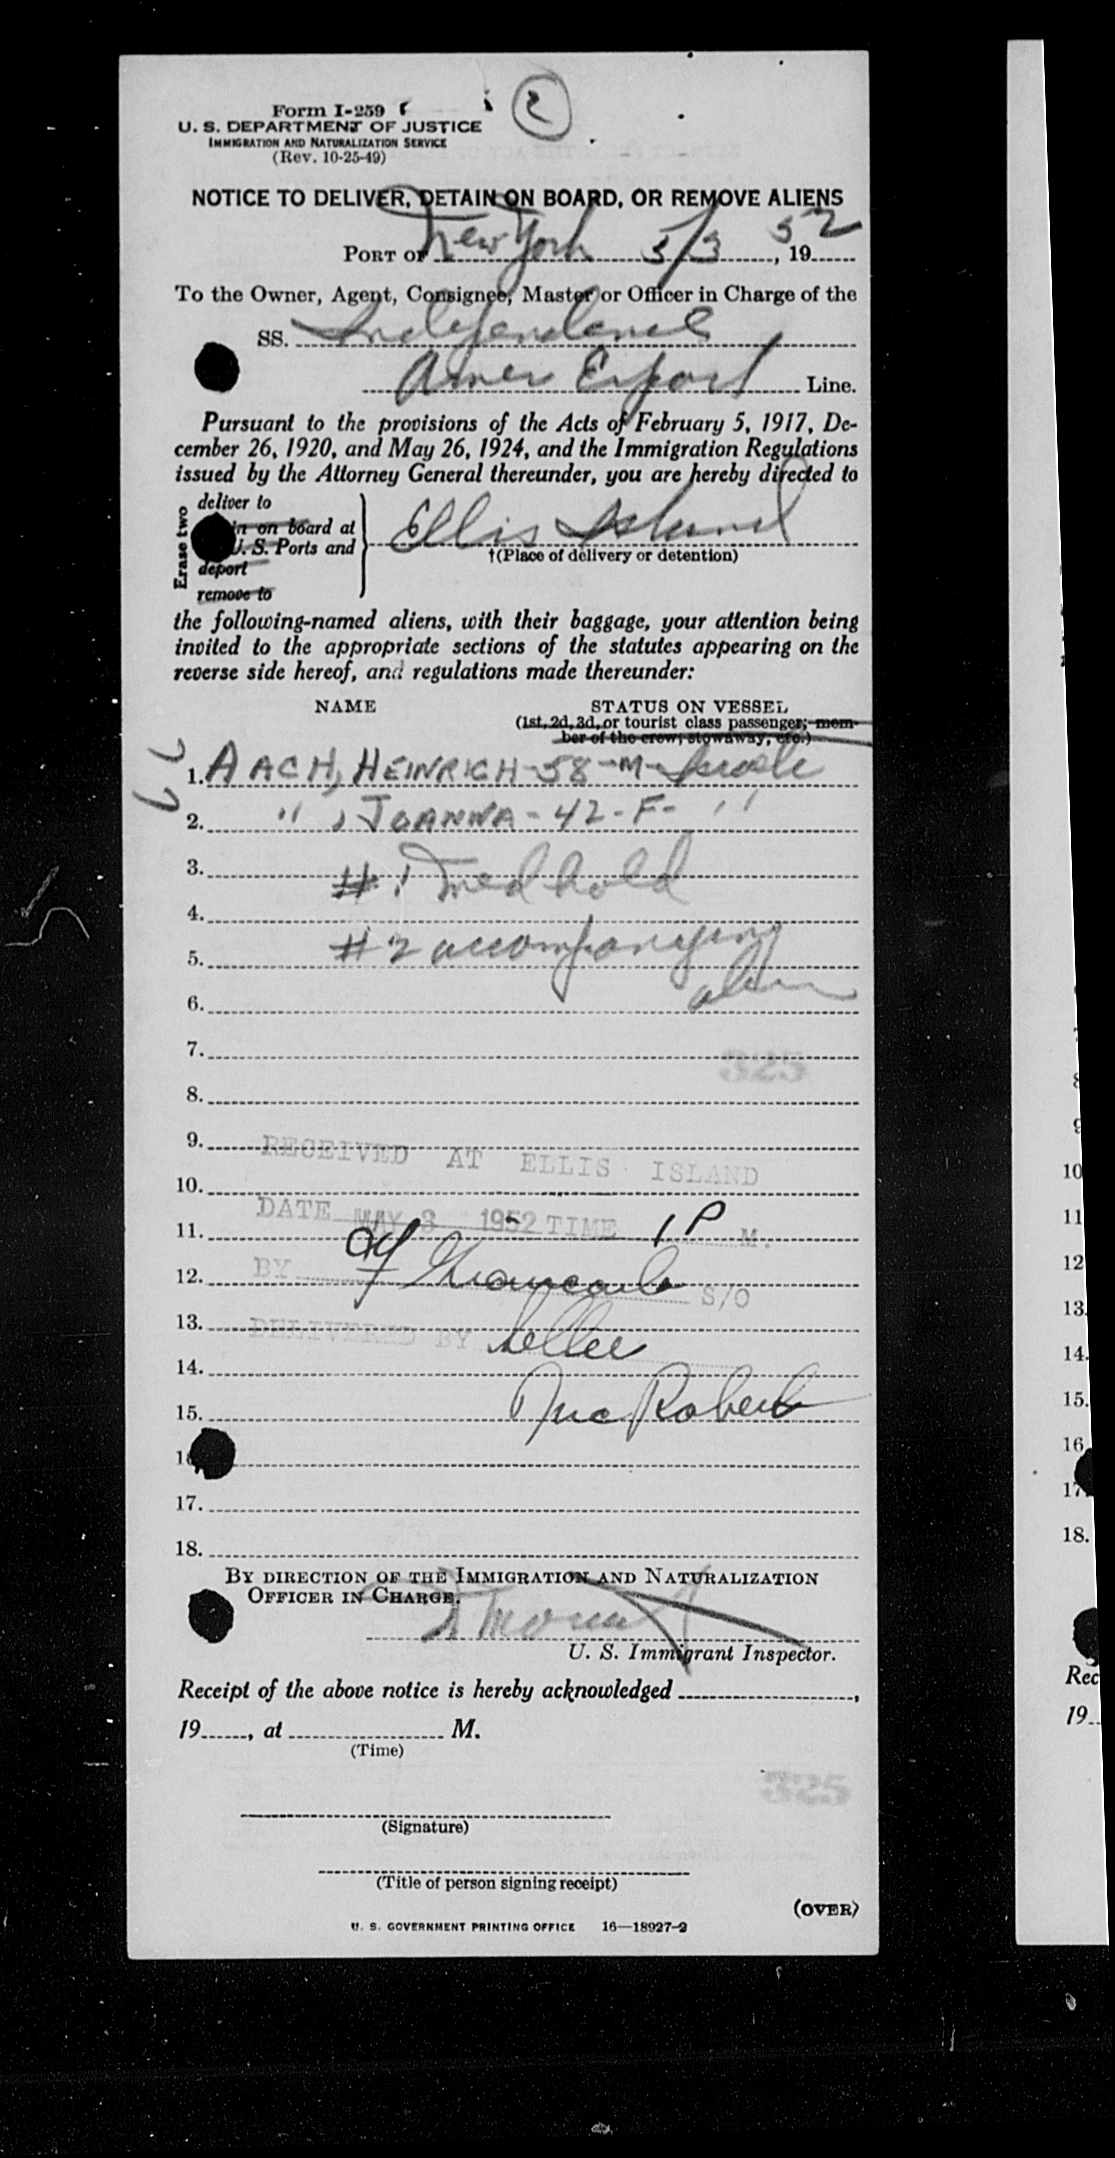 2
Form I-259
U. S. DEPARTMENT OF JUSTICE
IMMIGRATION AND NATURALIZATION SERVICE
(Rev. 10-25-49)
NOTICE TO DELIVER, DETAIN ON BOARD, OR REMOVE ALIENS
PORT OF New York 5/3, 1952
To the Owner, Agent, Consignee, Master or Officer in Charge of the
SS. Independence
Amer Export Line.
Pursuant to the provisions of the Acts of February 5, 1917, De-
cember 26, 1920, and May 26, 1924, and the Immigration Regulations
issued by the Attorney General thereunder, you are hereby directed to
Erase two
deliver to
in on board at
U. S. Ports and
deport
remove to
Ellis Island
†(Place of delivery or detention)
the following-named aliens, with their baggage, your attention being
invited to the appropriate sections of the statutes appearing on the
reverse side hereof, and regulations made thereunder:
NAME STATUS ON VESSEL
(1st, 2d, 3d, or tourist class passenger; mem-
ber of the crew; stowaway, etc.)
1. AACH, HEINRICH-58-M-
2. " , JOANNA-42-F- "
3. #1 Med hold
4.
5. #2 accompanying
6. alien
7.
325
8.
9. RECEIVED AT ELLIS ISLAND
10.
11. DATE MAY 3 1952 TIME 1 P M.
12. BY S/O
13. DELIVERED BY
14.
15. Roberts
16.
17.
18.
BY DIRECTION OF THE IMMIGRATION AND NATURALIZATION
OFFICER IN CHARGE.
U. S. Immigrant Inspector.
Receipt of the above notice is hereby acknowledged ,
19 , at M.
(Time)
325
(Signature)
(Title of person signing receipt)
(OVER)
U. S. GOVERNMENT PRINTING OFFICE 16—18927-2
10
11
12
13.
14.
15.
16
17.
18.
Rec
19